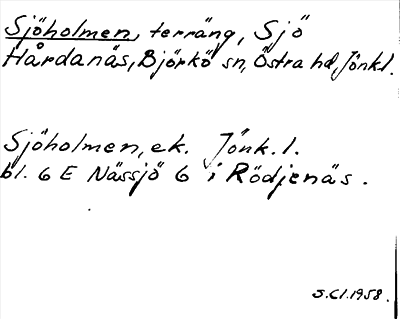 Sjöholmen, terräng, Sjö
Hårdanäs, Björkö sn, Östra hd, Jönk.l.
Sjöholmen, ek. Jönk. l.
bl. 6 E Nässjö 6 i Rödjenäs.
S.Cl.1958.